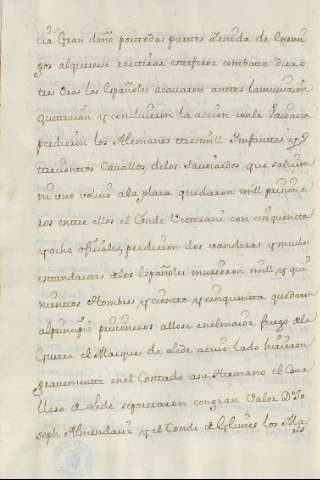 cia Gran daño por todas partes
al querese
tres Oras los Españoles acavaron antes la
quitaran y condujeron la accion con la
perdieron los Alemanes tres mill Infantes y
trecientos Cavallos, de los que
ni uno volvio a la plaza quedaron mill prisione
ros entre ellos el Conde Veterani con cinquenta
y ocho oficiales, perdieron dos vanderas y muchos
estandartes de los Españoles murieron mill y qui
nientos Hombres y ciento y cinquenta quedaron
al principio prisioneros allose en el maior fuego de la
Guerra el Marques de Lede a cuio lado hirieron
gravemente en el Costado a su Hermano el Cava
llero de Lede se portaron con gran Valor Dn Jo
seph Almendariz y el Conde de Glimes los Ma